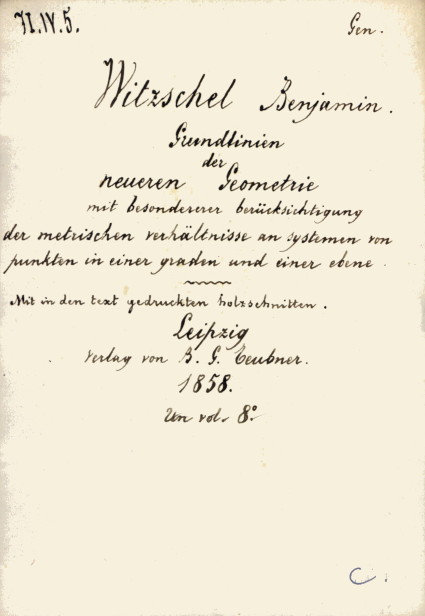 71.IV.5.
Gen.
Witzschel Benjamin.
Grundlinien
der
neueren Geometrie
mit besondererer berücksichtigung
der metrischen verhältnisse an systemen von
punkten in einer graden und einer ebene.
Mit in den text gedruckten holzschnitten.
Leipzig
Verlag von B. G. Teubner.
1858.
Un vol. 8º
C.